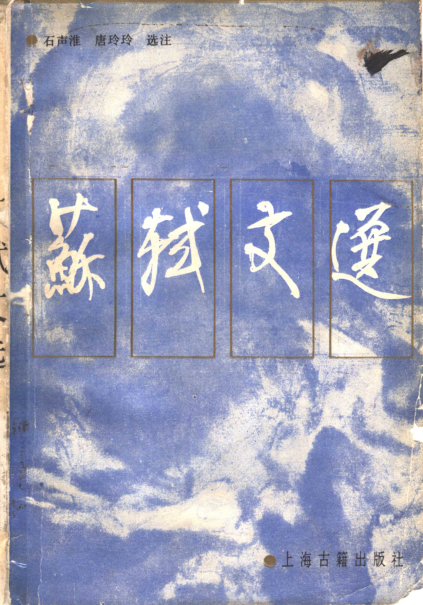 石声淮 唐玲玲 选注
蘇軾文選
上海古籍出版社